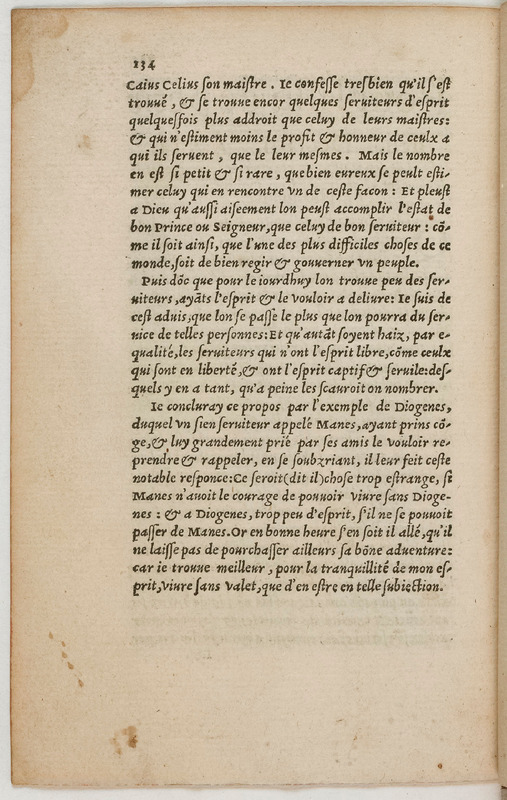 134
Caius Celius son maiſtre. Ie confeſſe treſbien qu'il ſ'eſt
trouué, & ſe trouue encor quelques ſeruiteurs d'eſprit
quelquesfois plus addroit que celuy de leurs maiſtres:
& qui n'eſtiment moins le profit & honneur de ceulx a
qui ils ſeruent, que le leur meſmes. Mais le nombre
en eſt ſi petit & ſi rare, que bien eureux ſe peult eſti-
mer celuy qui en rencontre vn de ceſte facon: Et pleuſt
a Dieu qu'auſſi aiſeement lon peuſt accomplir l'eſtat de
bon Prince ou Seigneur, que celuy de bon ſeruiteur: cō-
me il ſoit ainſi, que l'une des plus difficiles choſes de ce
monde, ſoit de bien regir & gouuerner vn peuple.
Puis dōc que pour le iourdhuy lon trouue peu des ſer-
uiteurs, ayāts l'eſprit & le vouloir a deliure: Ie ſuis de
ceſt aduis, que lon ſe paſſe le plus que lon pourra du ſer-
uice de telles perſonnes: Et qu'autāt ſoyent haiz, par e-
qualité, les ſeruiteurs qui n'ont l'eſprit libre, cōme ceulx
qui ſont en liberté, & ont l'eſprit captif & ſeruile: deſ-
quels y en a tant, qu'a peine les ſcauroit on nombrer.
Ie concluray ce propos par l'exemple de Diogenes,
duquel vn ſien ſeruiteur appelé Manes, ayant prins cō-
ge, & luy grandement prié par ſes amis le vouloir re-
prendre & rappeler, en ſe ſoubzriant, il leur feit ceſte
notable reſponce: Ce ſeroit (dit il) choſe trop eſtrange, ſi
Manes n'auoit le courage de pouuoir viure ſans Dioge-
nes: & a Diogenes, trop peu d'eſprit, ſ'il ne ſe pouuoit
paſſer de Manes. Or en bonne heure ſ'en ſoit il allé, qu'il
ne laiſſe pas de pourchaſſer ailleurs ſa bōne aduenture:
car ie trouue meilleur, pour la tranquillité de mon eſ-
prit, viure ſans valet, que d'en eſtre en telle ſubiection.